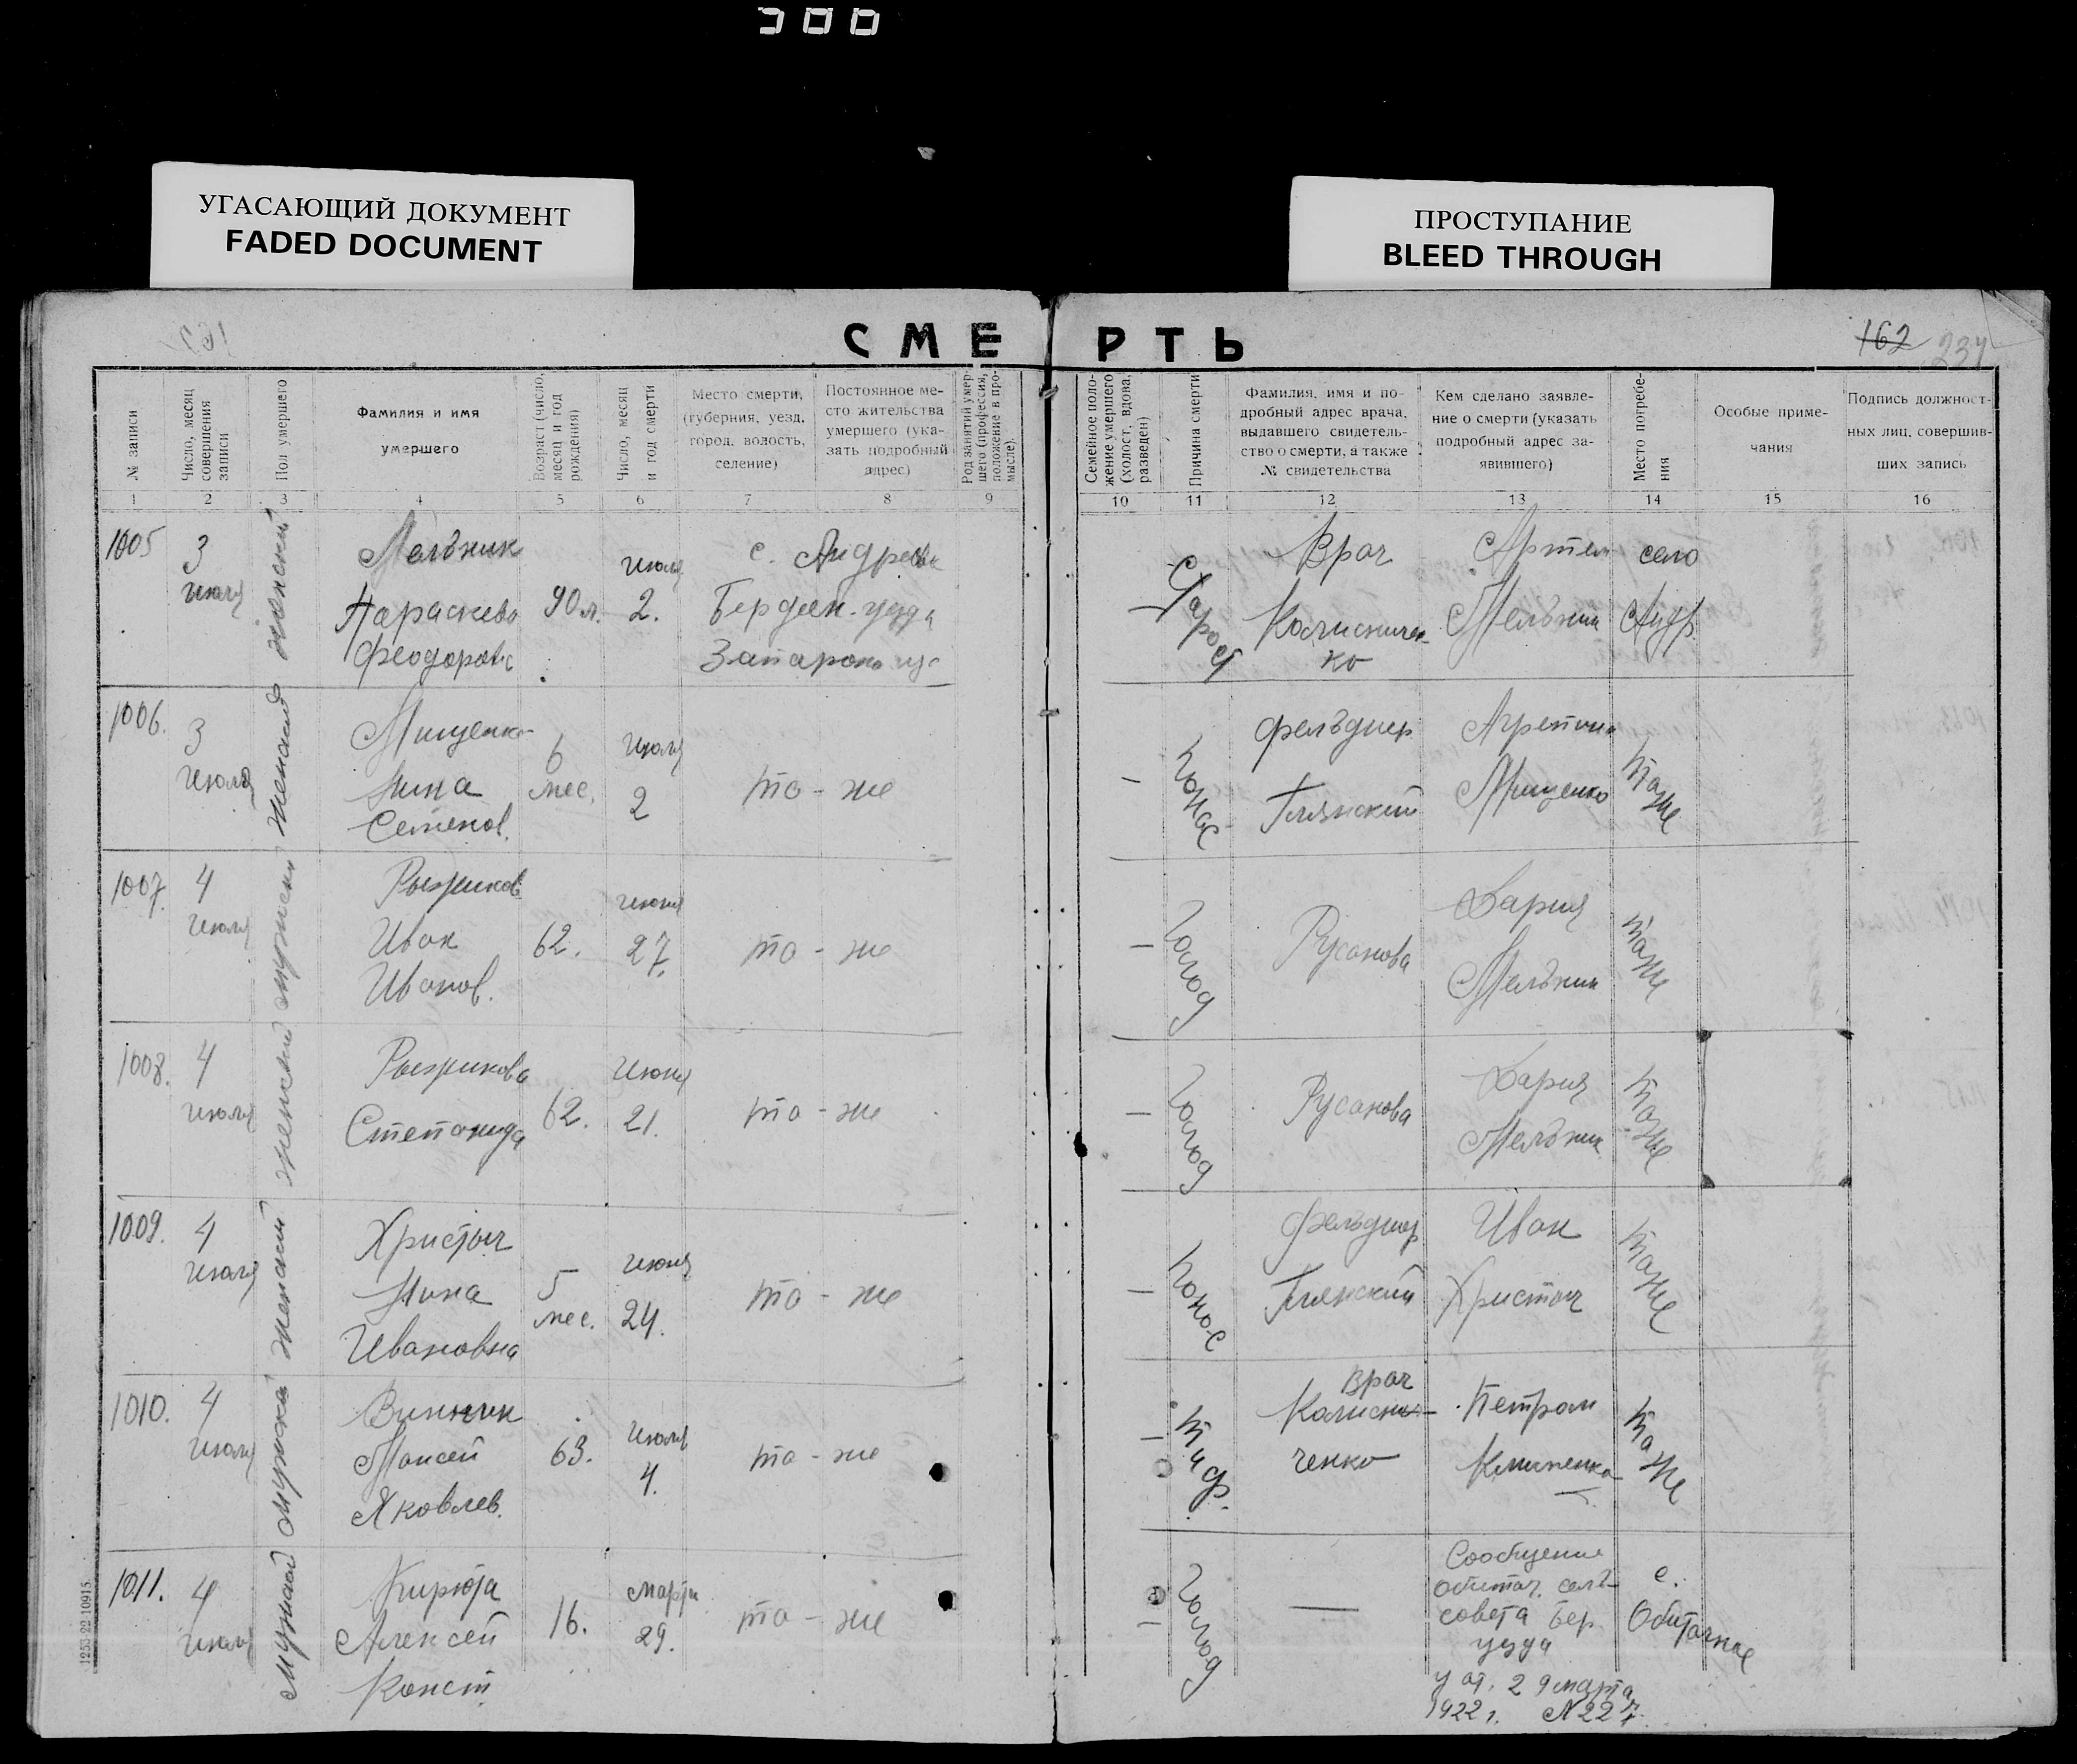 УГАСАЮЩИЙ ДОКУМЕНТ
FADED DOCUMENT
ПРОСТУПАНИЕ
BLEED THROUGH
СМЕРТЬ
162
237
№ записи
Число, месяц совершения записи
Пол умершего
Фамилия и имя умершего
Возраст (число, месяц и год рождения)
Число, месяц и год смерти
Место смерти, (губерния, уезд, город, волость, селение)
Постоянное место жительства умершего (указать подробный адрес)
Род занятий умершего (профессия, положение в промысле).
Семейное положение умершего (холост, вдова, разведен)
Причина смерти
Фамилия, имя и подробный адрес врача, выдавшего свидетельство о смерти, а также № свидетельства
Кем сделано заявление о смерти (указать подробный адрес заявившего)
Место погребения
Особые примечания
Подпись должностных лиц, совершивших запись
1 2 3 4 5 6 7 8 9 10 11 12 13 14 15 16
1005
3
июля
женский
Мельник
Параскева
Феодоров
90 л.
июля
2.
с. Андреевк
Бердян. уезда
Запарож
Старост
Врач
Колисничен-
ко
Артем
Мельник
село
Андр.
1006.
3
июля
женский
Мищенко
Нина
Семенов.
6
мес.
июля
2
то-же
понос
фельдшер
Глянский
Мищенко
таже
1007.
4
июля
мужский
Рыжиков
Иван
Иванов.
62.
июня
27.
то-же
голод
Русанова
Дария
Мельник
таже
1008.
4
июля
женский
Рыжикова
Степанида
62.
июня
21.
то-же
голод
Русанова
Дария
Мельник
таже
1009.
4
июля
женский
Христыч
Нина
Ивановна
5
мес.
июня
24.
то-же
понос
фельдшер
Глянский
Иван
Христыч
таже
1010.
4
июля
Винник
Моисей
Яковлев.
63.
июля
4.
то-же
тиф.
врач
Колисни-
ченко
Петром
Клименко
таже
1011.
4
июля
Кирюта
Алексей
Конст.
16.
марта
29.
то-же
голод
—
Сообщение
обиточ. сель-
совета Бер.
уезда
от. 29 марта
1922 г. №227
с.
Обиточное
1253-22-10915